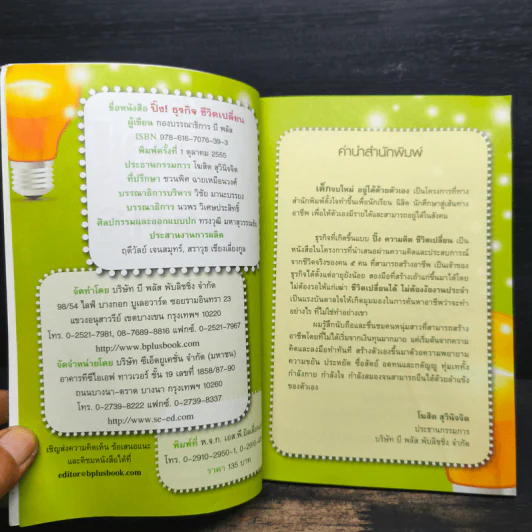 ชื่อหนังสือ ปิ๊ง! ธุรกิจ ชีวิตเปลี่ยน
ผู้เขียน กองบรรณาธิการ บี พลัส
ISBN 978-616-7076-39-3
พิมพ์ครั้งที่ 1 ตุลาคม 2555
ประธานกรรมการ โฆสิต สุวินิจจิต
ที่ปรึกษา ชวนพิศ ฉายเหมือนวงศ์
บรรณาธิการบริหาร วิชัย มานะบรรยง
บรรณาธิการ นวพร วิเศษประสิทธิ์
ศิลปกรรมและออกแบบปก ทรงวุฒิ มหาสุวรรณชัย
ประสานงานการผลิต
ฤดีวัลย์ เจนสมุทร์, สราวุธ เชียงเลี่ยงกูล
จัดทำโดย บริษัท บี พลัส พับลิชชิ่ง จำกัด
98/54 ไลฟ์ บางกอก บูเลอวาร์ด ซอยรามอินทรา 23
แขวงอนุสาวรีย์ เขตบางเขน กรุงเทพฯ 10220
โทร. 0-2521-7981, 08-7689-8816 แฟกซ์. 0-2521-7967
http://www.bplusbook.com
จัดจำหน่ายโดย บริษัท ซีเอ็ดยูเคชั่น จำกัด (มหาชน)
อาคารทีซีไอเอฟ ทาวเวอร์ ชั้น 19 เลขที่ 1858/87-90
ถนนบางนา-ตราด บางนา กรุงเทพฯ 10260
โทร. 0-2739-8222 แฟกซ์. 0-2739-8337
http://www.se-ed.com
เชิญส่งความคิดเห็น ข้อเสนอแนะ
และติชมหนังสือได้ที่
editor@bplusbook.com
พิมพ์ที่ ห.จ.ก. เอส.พี.
โทร. 0-2910-2950-1,
ราคา 135 บาท
คำนำสำนักพิมพ์
เด็กจบใหม่ อยู่ได้ด้วยตัวเอง เป็นโครงการที่ทาง
สำนักพิมพ์ตั้งใจทำขึ้นเพื่อนักเรียน นิสิต นักศึกษาสู่เส้นทาง
อาชีพ เพื่อให้ตัวเองมีรายได้และสามารถอยู่ได้ในสังคม
ธุรกิจที่เกิดขึ้นแบบ ปิ๊ง ความคิด ชีวิตเปลี่ยน เป็น
หนังสือในโครงการที่นำเสนอผ่านความคิดและประสบการณ์
จากชีวิตจริงของคน ๕ คน ที่สามารถสร้างอาชีพ เป็นเจ้าของ
ธุรกิจได้ตั้งแต่อายุยังน้อย สองมือที่สร้างเถ้าแก่ขึ้นมาได้โดย
ไม่ต้องรอให้แก่เฒ่า ชีวิตเปลี่ยนได้ ไม่ต้องง้องานประจำ
เป็นแรงบันดาลใจให้เกิดมุมมองในการค้นหาอาชีพว่าจะทำ
อย่างไร ที่ไม่ใช่ทำอย่างเขา
ผมรู้สึกนับถือและชื่นชมคนหนุ่มสาวที่สามารถสร้าง
อาชีพโดยที่ไม่ได้เริ่มจากเงินทุนมากมาย แต่เริ่มต้นจากความ
คิดและลงมือทำทันที สร้างตัวเองขึ้นมาด้วยความพยายาม
ความขยัน ประหยัด ซื่อสัตย์ อดทนและกตัญญู ทุ่มเททั้ง
กำลังกาย กำลังใจ กำลังสมองจนสามารถยืนได้ด้วยลำแข้ง
ของตัวเอง
โฆสิต สุวินิจจิต
ประธานกรรมการ
บริษัท บี พลัส พับลิชชิ่ง จำกัด